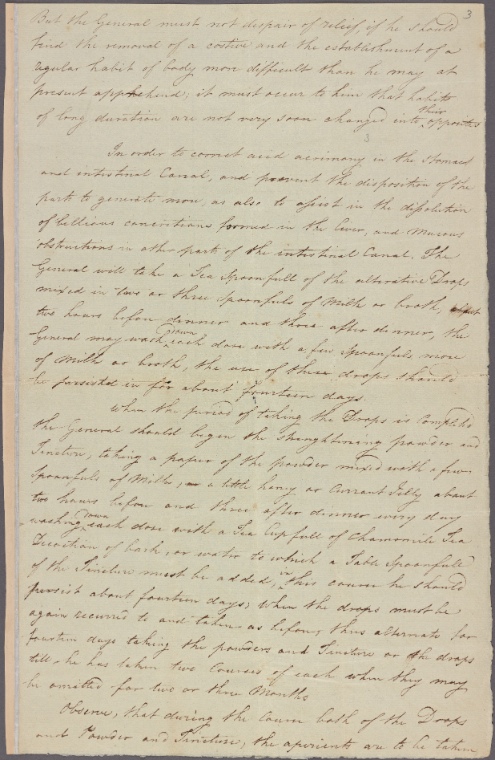 3
But the General must not despair of relief, if he should
find the removal of a costive and the establishment of a
regular habit of body more difficult than he may at
present apprehend; it must occur to him that habits
of long duration are not very soon changed into their opposites
3
In order to correct acid acrimony in the stomach
and intestinal Canal, and prevent the disposition of the
parts to generate more, as also to assist in the dissolution
of billious concretions formed in the liver, and Mucous
obstructions in other parts of the intestinal Canal. The
General will take a Tea Spoonfull of the alterative Drops
mixed in two or three Spoonfuls of Milk or broth, about
two hours before dinner and three after dinner, the
General may wash down each dose with a few Spoonfuls more
of Milk or broth, the use of these drops should
be persisted in for about fourteen days.
When the period of taking the Drops is Compleet
the General should begin the Strengthening powder and
Tincture, taking a paper of the powder mixed with a few
Spoonfuls of Milk, a little honey or Currant Jelly about
two hours before and three after dinner every day
washing down each dose with a Tea Cup full of Chamomile Tea
Decoction of bark, or water to which a Table Spoonfull
of the Tincture must be added, in this course he should
persist about fourteen days, when the drops must be
again recurred to and taken as before, thus alternate for
fourteen days taking the powders and Tincture or the drops
till he has taken two Courses of each when they may
be omitted for two or three Months
Observe, that during the Course both of the Drops
and Powder and Tincture, the aperients are to be taken